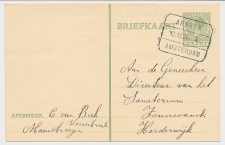 BRIEFKAART
ARNHEM
AMSTERDAM
Aan de Geneesheer
Directeur van het
Sanatorium
Sonnevanck
Harderwijk
AFZENDER: C. van Beek